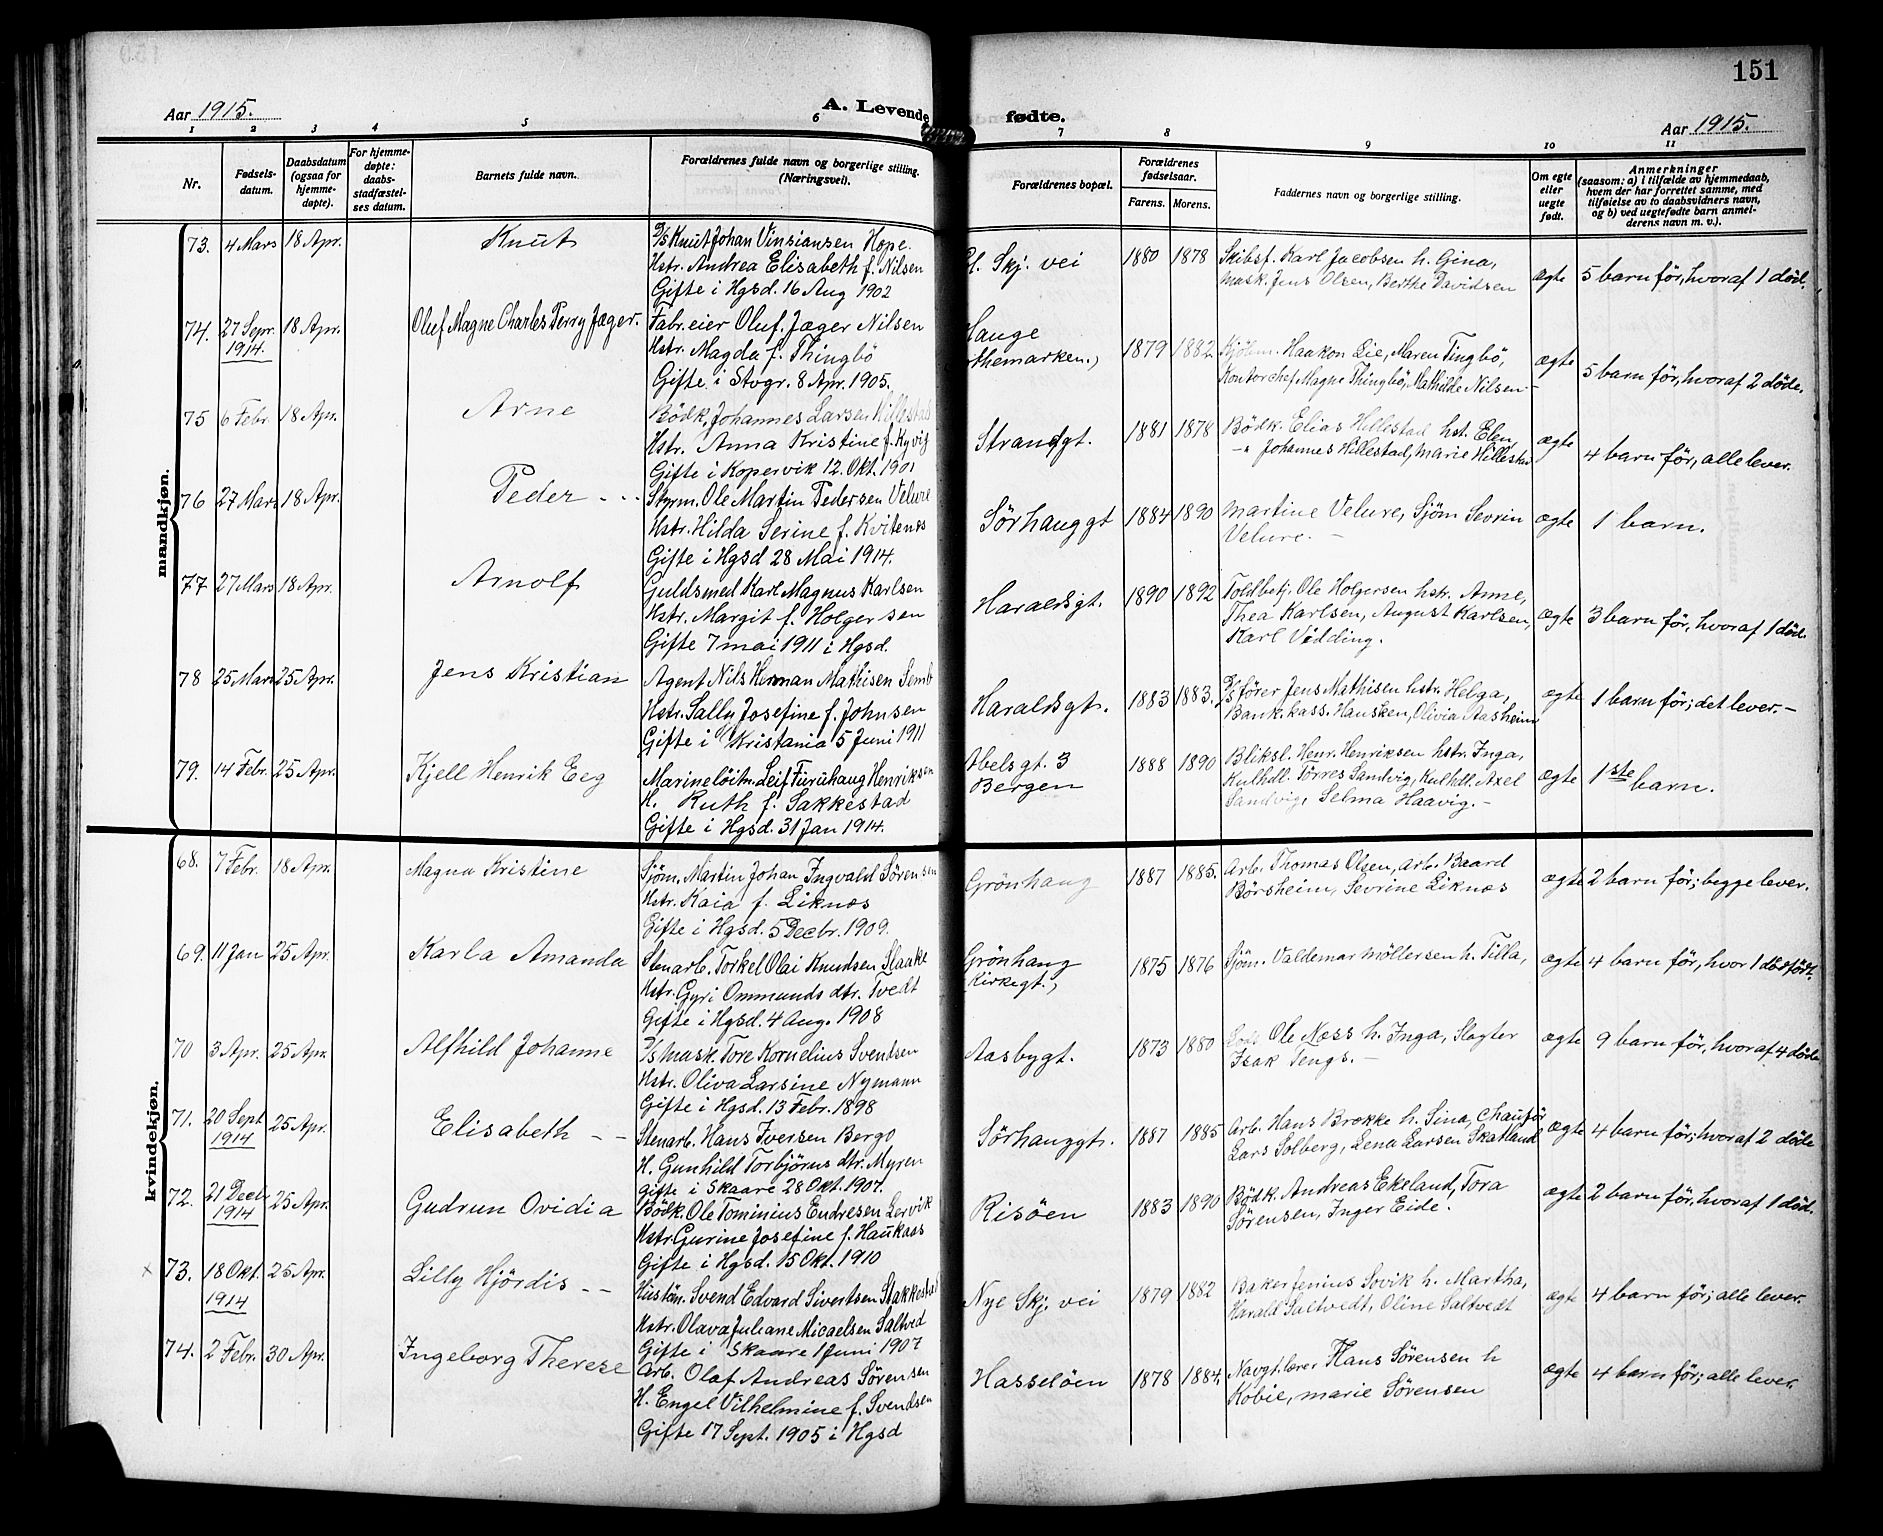 151
Aar 1915. A. Levende fødte. Aar 1915.
1 2 3 4 5 6 7 8 9 10 11
Nr.
Fødsels-
datum.
Daabsdatum
(ogsaa for
hjemme-
døpte).
For hjemme-
døpte:
daabs-
stadfæstel-
ses datum.
Barnets fulde navn.
Forældrenes fulde navn og borgerlige stilling.
(Næringsvei).
Forældrenes bopæl.
Forældrenes
fødselsaar.
Farens. Morens.
Faddernes navn og borgerlige stilling.
Om egte
eller
uegte
født.
Anmerkninger
(saasom: a) i tilfælde av hjemmedaab,
hvem der har forrettet samme, med
tilføielse av to daabsvidners navn,
og b) ved uegtefødte barn anmel-
derens navn m. v.).
mandkjøn.
73. 4 Mars 18 Apr. Knut
D/S Knut Johan Vinsiansen Hope.
Hstr. Andrea Elisabeth f. Nilsen
Gifte i Hgsd. 16 Aug 1902
Gl. Skj. vei 1880 1878
Skibsf. Karl Jacobsen h. Gina,
mask. Jens Olsen, Berthe Davidsen
ægte 5 barn før, hvoraf 1 død.
74. 27 Sepr. 1914. 18 Apr. Oluf Magne Charles Perry Jæger.
Fabr.eier Oluf Jæger Nilsen
Hstr. Magda f. Thingbö
Gifte i Stvgr. 8 Apr. 1905.
Hauge
1879 1882
Kjöbm. Haakon Lie, Maren Tingbö,
Kontorchef Magne Thingbö, Mathilde Nilsen -
ægte 5 barn før, hvoraf 2 døde.
75 6 Febr. 18 Apr. Arne
Bödk. Johannes Larsen Hillestad
Hstr. Anna Kristine f. Kyvig
Gifte i Kopervik 12. Okt. 1901
Strandgt. 1881 1878
Bödk. Elias Hillestad hst. Elen
-"- Johannes Hillestad, Marie Hillestad
ægte 4 barn før, alle lever.
76 27 Mars 18 Apr. Peder - -
Styrm. Ole Martin Pedersen Velure
Hstr. Hilda Serine f. Kvitenes
Gifte i Hgsd 28 Mai 1914.
Sörhauggt 1884 1890
Martine Velure, Sjöm Sevrin
Velure. -
ægte 1 barn.
77 27 Mars 18 Apr. Arnolf
Guldsmed Karl Magnus Karlsen
Hstr. Margit f. Holgersen
Gifte 7 mai 1911 i Hgsd.
Haraldsgt. 1890 1892
Toldbetj. Ole Holgersen hstr. Anne,
Thea Karlsen, August Karlsen,
Karl Vidding.
ægte 3 barn før, hvoraf 1 død.
78 25 Mars 25 Apr. Jens Kristian
Agent Nils Herman Mathisen Semb
Hstr. Sally Josefine f. Johnsen
Gifte i Kristania 5 Juni 1911
Haraldsgt. 1883 1883.
D/S förer Jens Mathisen hstr. Helga,
Bank.kass. Hausken, Olivia Aasheim
ægte 1 barn før; det lever. -
79. 14 Febr. 25 Apr. Kjell Henrik Eeg
Marinelöitn. Leif Furuhaug Henriksen
H. Ruth f. Sakkestad
Gifte i Hgsd. 31 Jan 1914.
Abelsgt. 3
Bergen
1888 1890
Bliksl. Henr. Henriksen hstr. Inga,
Kulhdl. Törres Sandvig, Kulhdl. Axel
Sandvig, Selma Haavig. -
ægte 1ste barn.
kvindekjøn.
68. 7 Febr. 18 Apr. Magna Kristine
Sjöm. Martin Johan Ingvald Sörensen
Hstr. Kaia f. Liknes
Gifte i Hgsd. 5 Decbr. 1909.
Grönhaug 1887 1885.
Arb. Thomas Olsen, arb. Baard
Börsheim, Sevrine Liknæs
ægte 2 barn før; begge lever.
69. 11 Jan 25 Apr. Karla Amanda
Stenarb. Torkel Olai Knudsen Slaake
Hstr. Gyri Ommunds dtr. Tvedt
Gifte i Hgsd. 4 Aug. 1908
Grönhaug
Kirkegt.,
1875 1876
Sjöm. Valdemar Möllersen h. Tilla,
ægte 4 barn før, hvor 1 dødfødt.
70 3 Apr. 25 Apr. Alfhild Johanne
D/S Mask. Tore Kornelius Svendsen
Hstr. Oliva Larsine Nymann
Gifte i Hgsd. 13 Febr. 1898
Aasbygt. 1873 1880
Ole Næss h. Inga, Slagter
Isak Tengs. -
ægte 9 barn før, hvoraf 4 døde
71. 20 Sept 1914 25 Apr. Elisabeth - -
Stenarb. Hans Iversen Bergo
H. Gunhild Torbjörns dtr. Myren
gifte i Skaare 28 Okt. 1907.
Sörhauggt. 1887 1885
Arb. Hans Brokke h. Sina, Chauför
Lars Solberg, Lena Larsen Skatland
ægte 4 barn før; hvoraf 2 døde
72. 21 Decb 1914 25 Apr. Gudrun Ovidia
Bödk. Ole Tominius Endresen Lervik
Hstr. Gurine Josefine f. Haukaas
Gifte i Hgsd. 15 Okt. 1910
Risöen 1883 1890
Bödk. Andreas Ekeland, Tora
Sörensen, Inger Eide.
ægte 2 barn før, hvoraf 1 død.
x 73. 18 Okt. 1914 25 Apr. Lilly Hjördis - -
Svend Edvard Sivertsen Stakkestad
Hstr. Olava Juliane Micaelsen Saltved
Gifte i Skaare 1 Juni 1907
Nye Skj. vei 1879 1882
Baker Jenius Sovik h. Martha,
Harald Saltvedt, Oline Saltvedt
ægte 4 barn før; alle lever.
74. 2 Febr. 30 Apr. Ingeborg Therese
Arb. Olaf Andreas Sörensen
H. Engel Vilhelmine f. Svendsen
Gifte 17 Sept. 1905 i Hgsd
Hasselöen 1878 1884.
Navgt.lærer Hans Sörensen h
Kobie, marie Sörensen
ægte 4 barn før; alle lever.